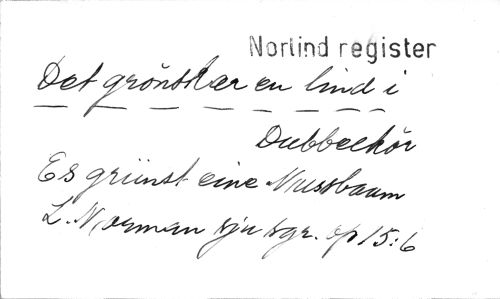 Norlind register
Det grönskar en lind i
Dubbelkör
Es grünst eine Nussbaum
L. Norman sju sgr. op 15:6